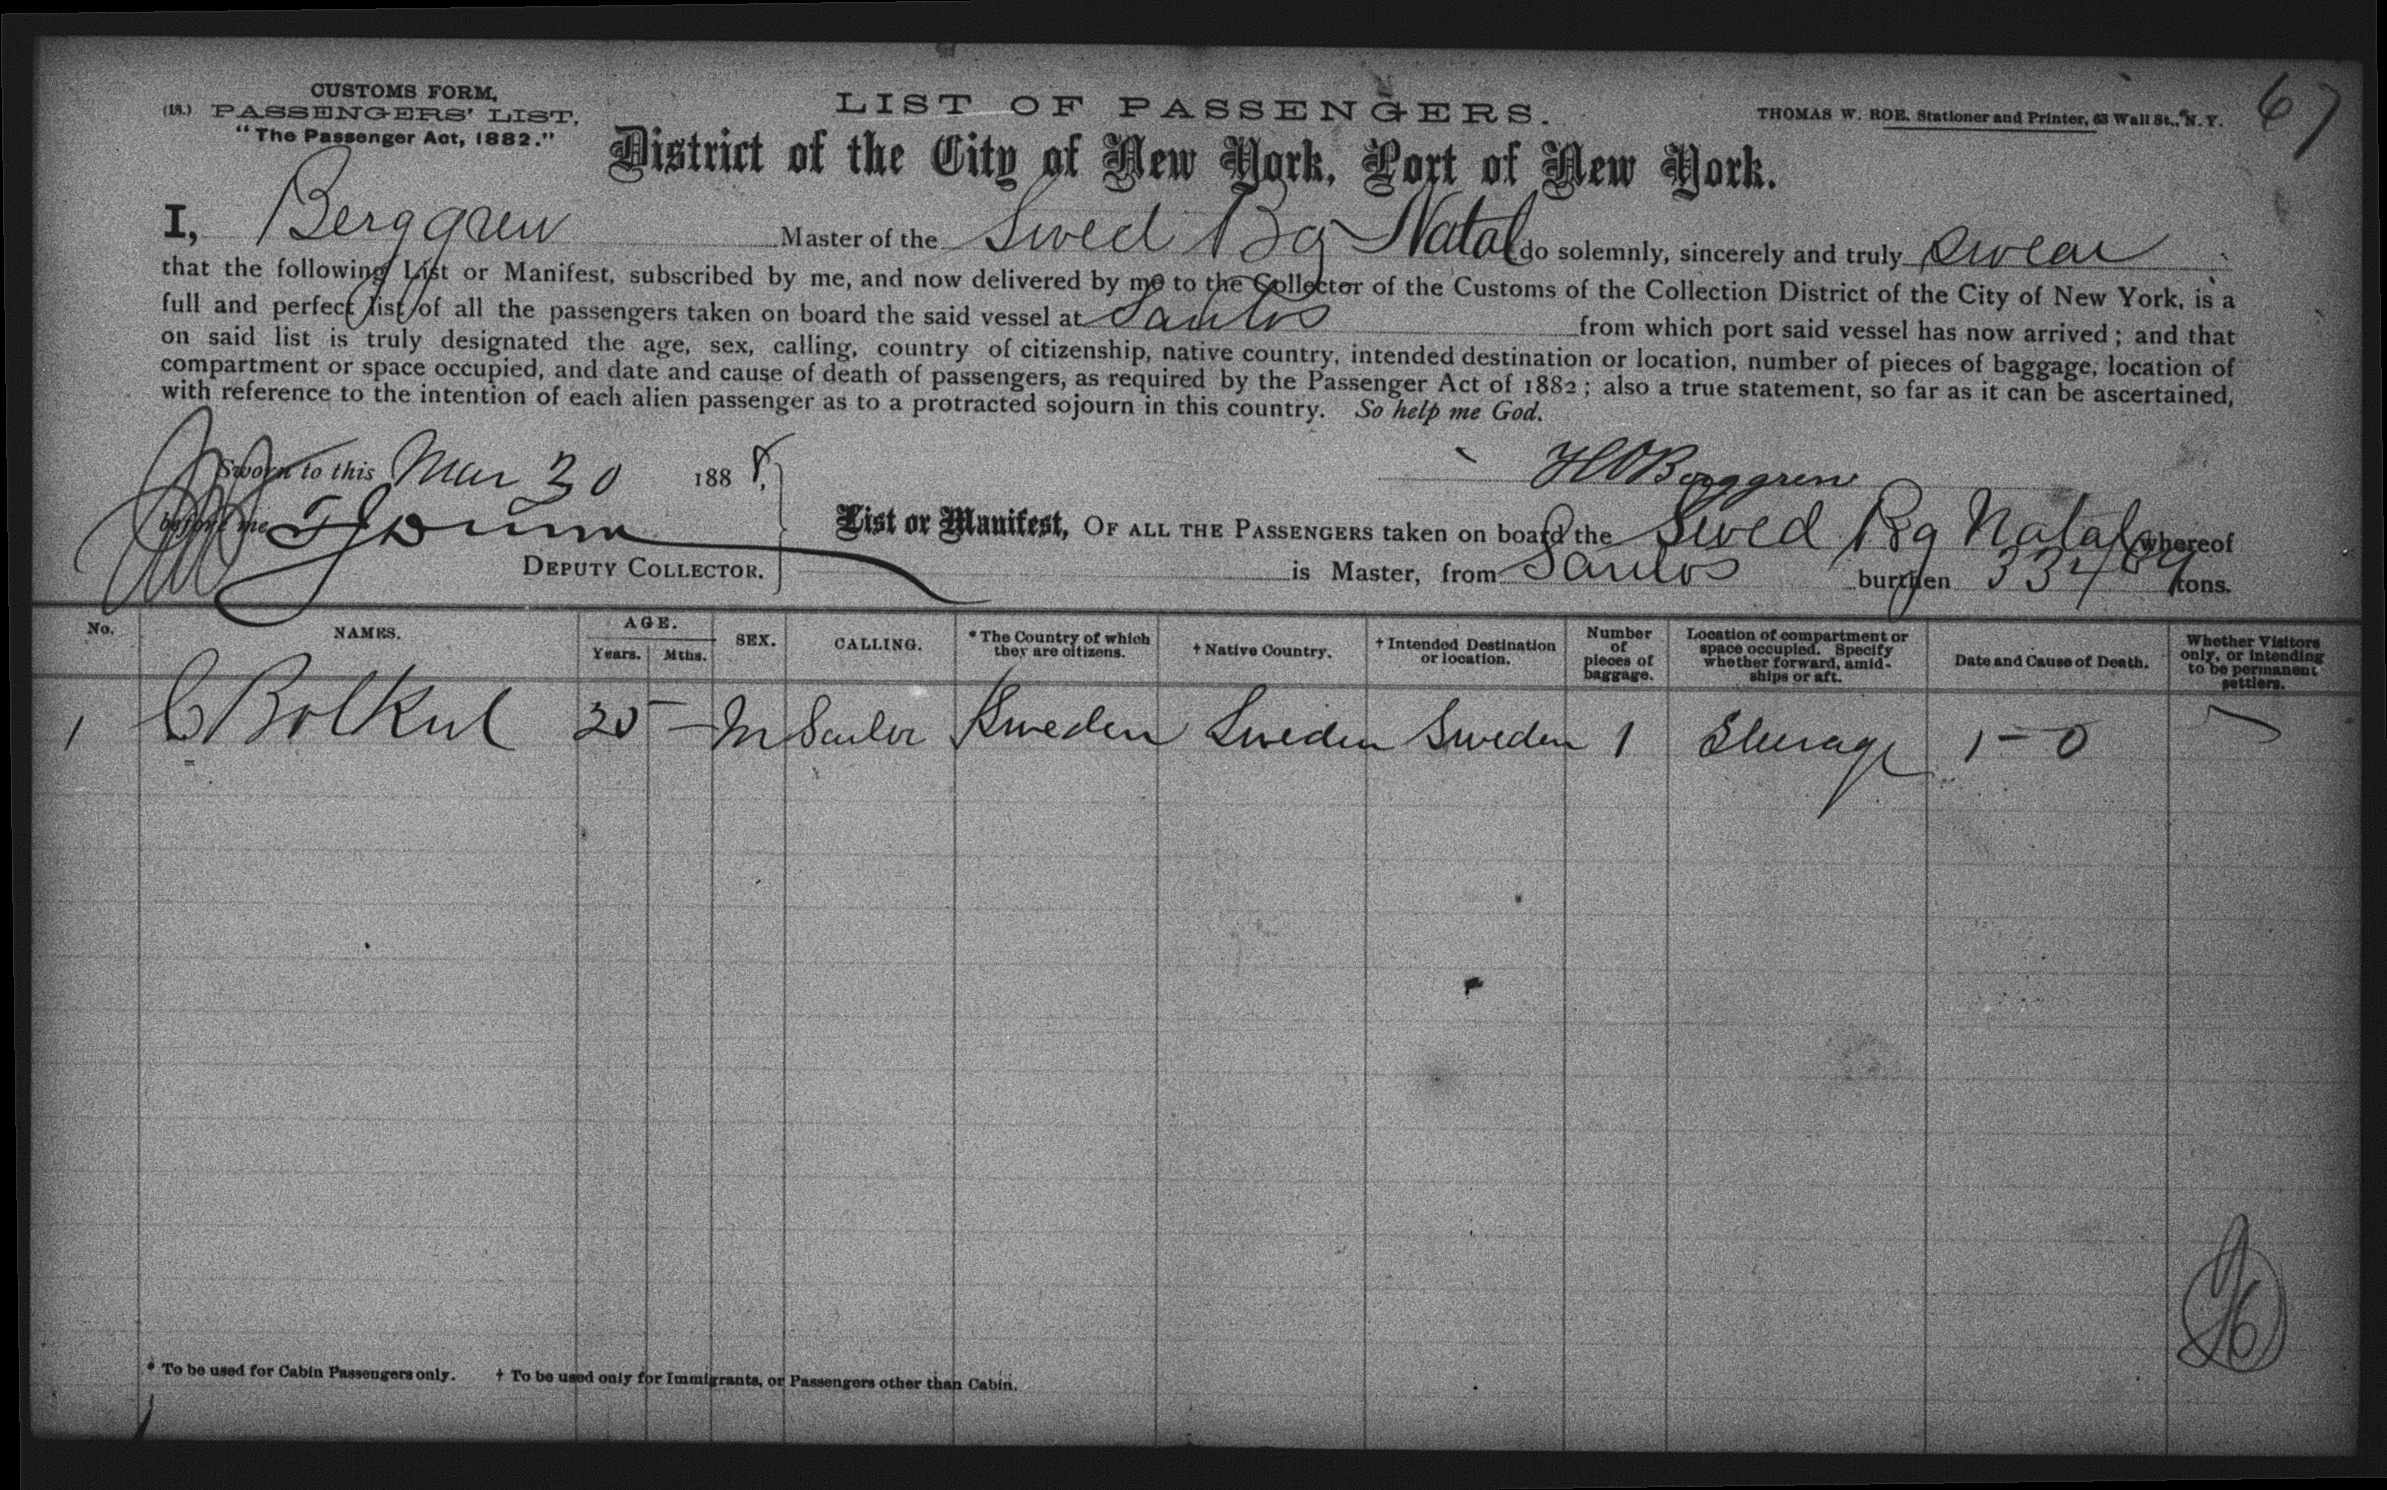 67
CUSTOMS FORM,
(18.) PASSENGERS' LIST,
"The Passenger Act, 1882."
LIST OF PASSENGERS.
THOMAS W. ROE, Stationer and Printer, 63 Wall St., N.Y.
District of the City of New York, Port of New York.
I, Berggren Master of the Swed Bg Natal do solemnly, sincerely and truly swear
that the following List or Manifest, subscribed by me, and now delivered by me to the Collector of the Customs of the Collection District of the City of New York, is a
full and perfect list of all the passengers taken on board the said vessel at Santos from which port said vessel has now arrived; and that
on said list is truly designated the age, sex, calling, country of citizenship, native country, intended destination or location, number of pieces of baggage, location of
compartment or space occupied, and date and cause of death of passengers, as required by the Passenger Act of 1882; also a true statement, so far as it can be ascertained,
with reference to the intention of each alien passenger as to a protracted sojourn in this country. So help me God.
Sworn to this Mar 30 1888,
H O Berggren
before me Dunn
DEPUTY COLLECTOR.
List or Manifest, OF ALL THE PASSENGERS taken on board the Swed Bg Natal whereof
Berggren is Master, from Santos burthen 334 tons.
No. NAMES. AGE. Years. Mths. SEX. CALLING. * The Country of which they are citizens. † Native Country. † Intended Destination or location. Number of pieces of baggage. Location of compartment or space occupied. Specify whether forward, amidships or aft. Date and Cause of Death. Whether Visitors only, or intending to be permanent settlers.
1 C 25 — M Sailor Sweden Sweden Sweden 1 Steerage 1 – 0
* To be used for Cabin Passengers only. † To be used only for Immigrants, or Passengers other than Cabin.